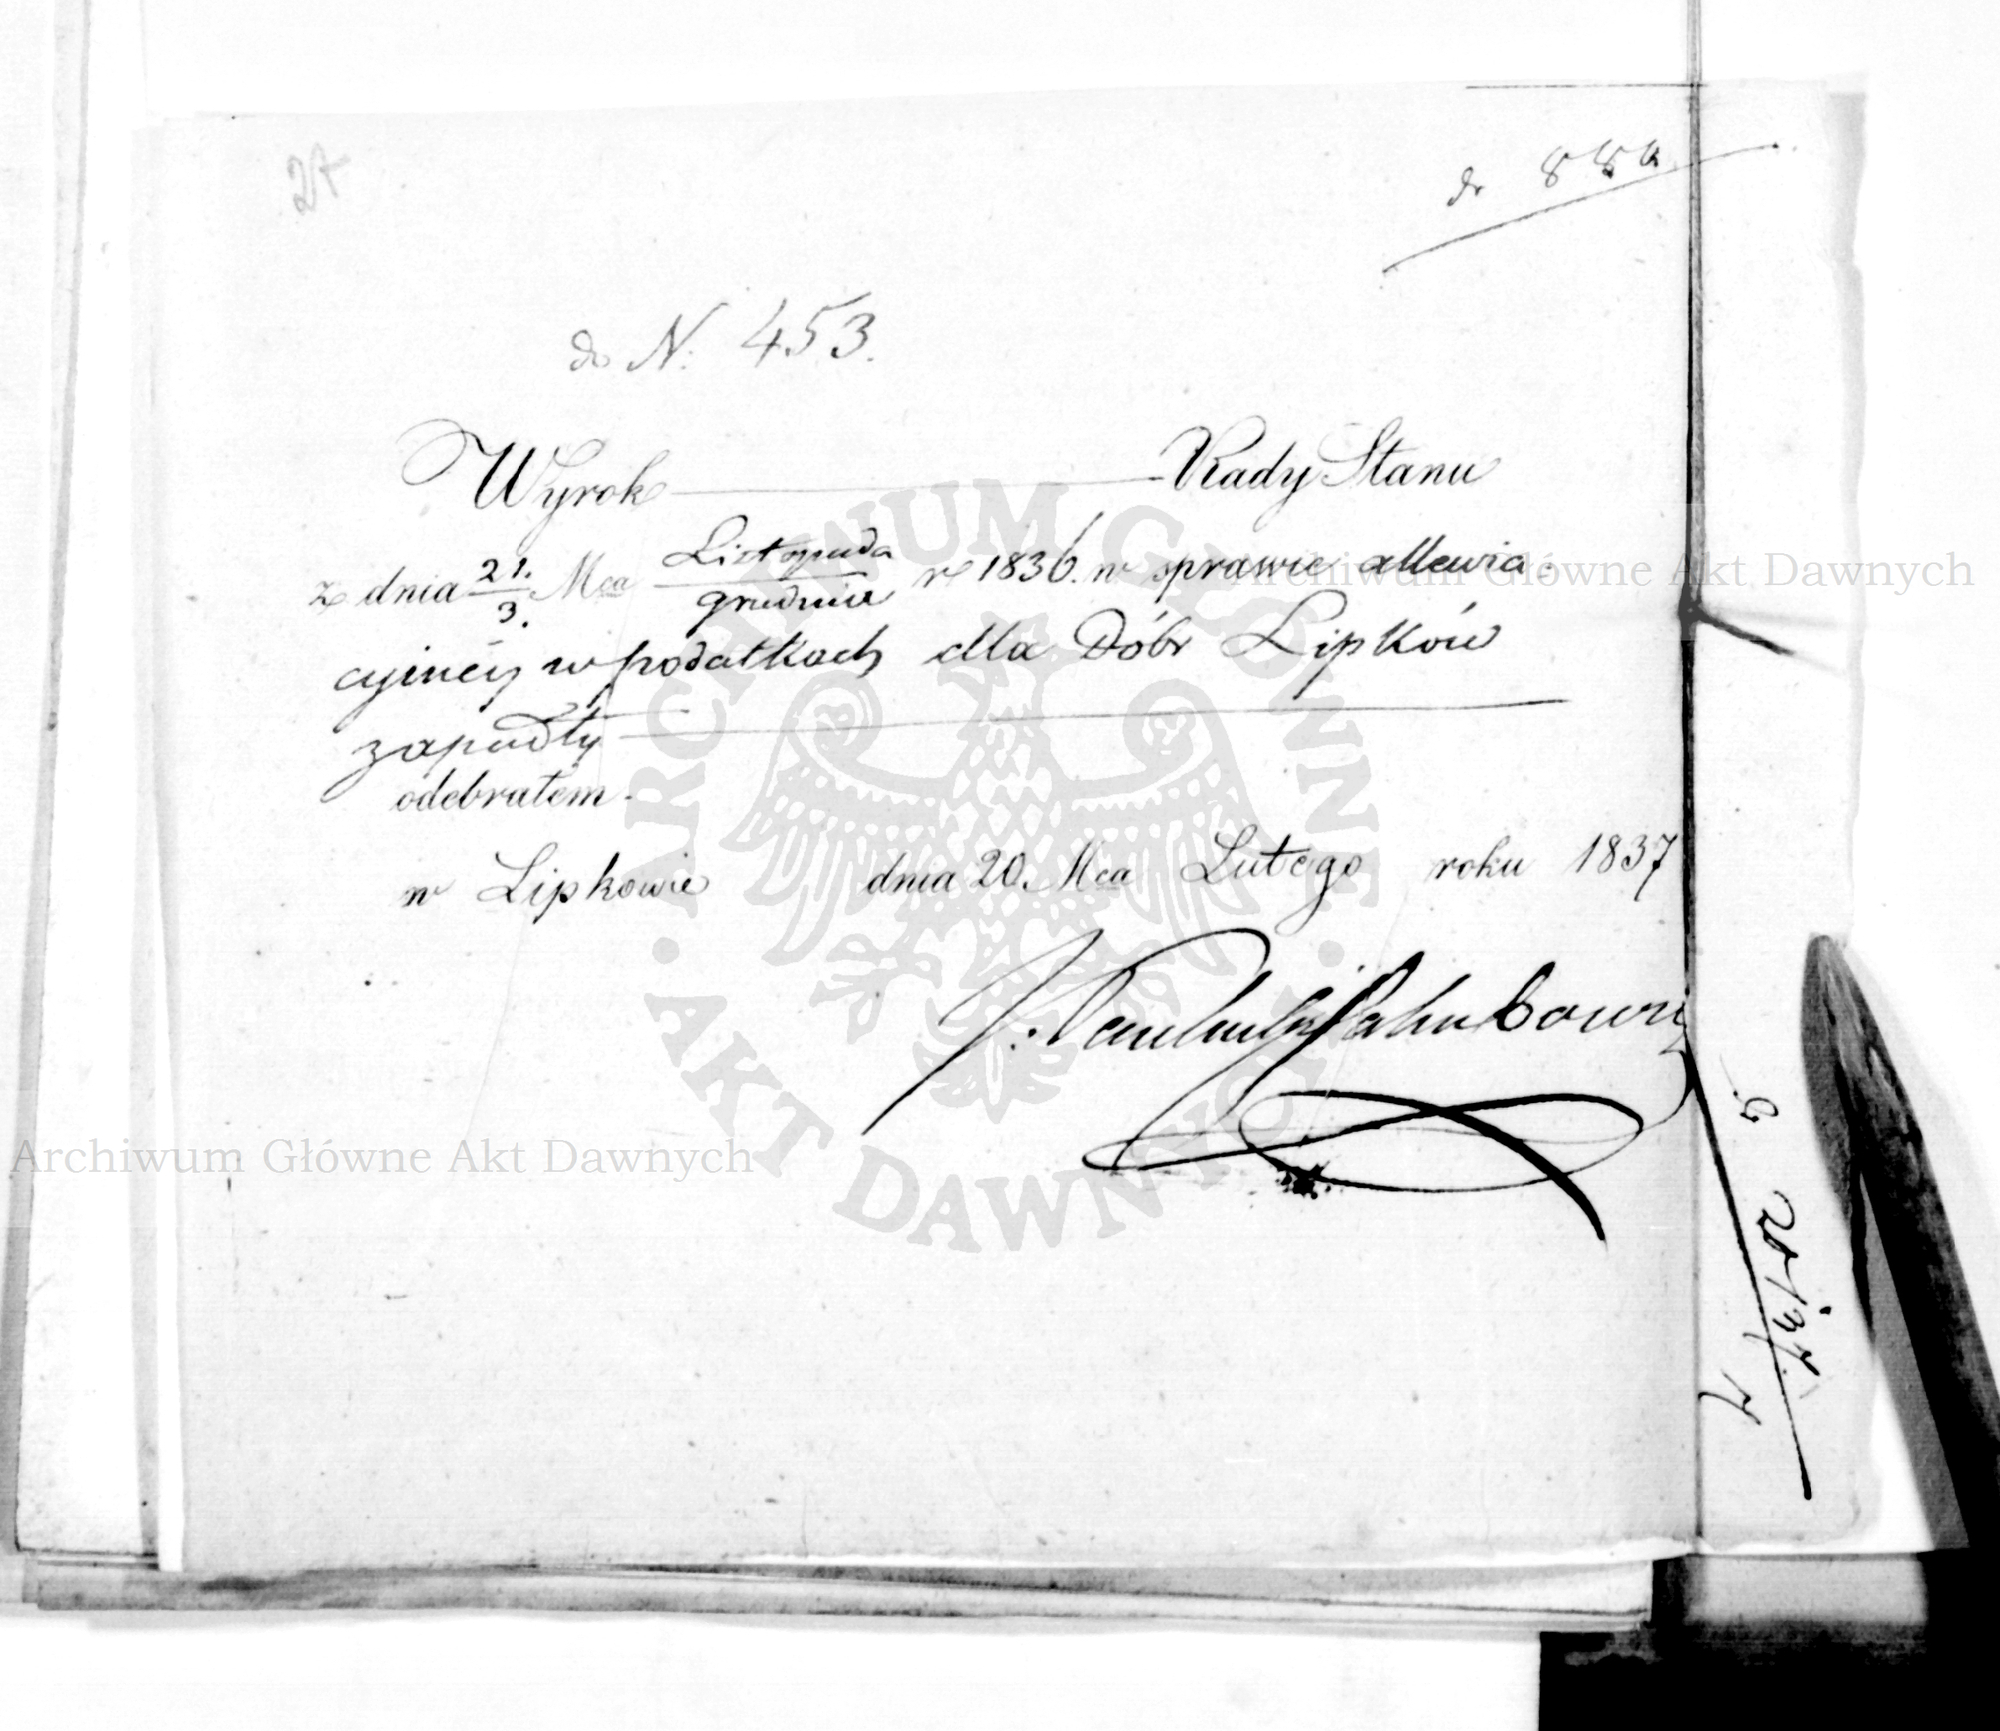 27
do
do N. 453.
Wyrok Rady Stanu
z dnia 21./3. Mca Listopada/grudnia r 1836. w sprawie allewia-
cyinéy w podatkach dla Dóbr Lipków
zapadły
odebrałem.
w Lipkowie dnia 20. Mca Lutego roku 1837
ARCHIWUM GŁÓWNE · AKT DAWNYCH ·
Archiwum Główne Akt Dawnych
Archiwum Główne Akt Dawnych